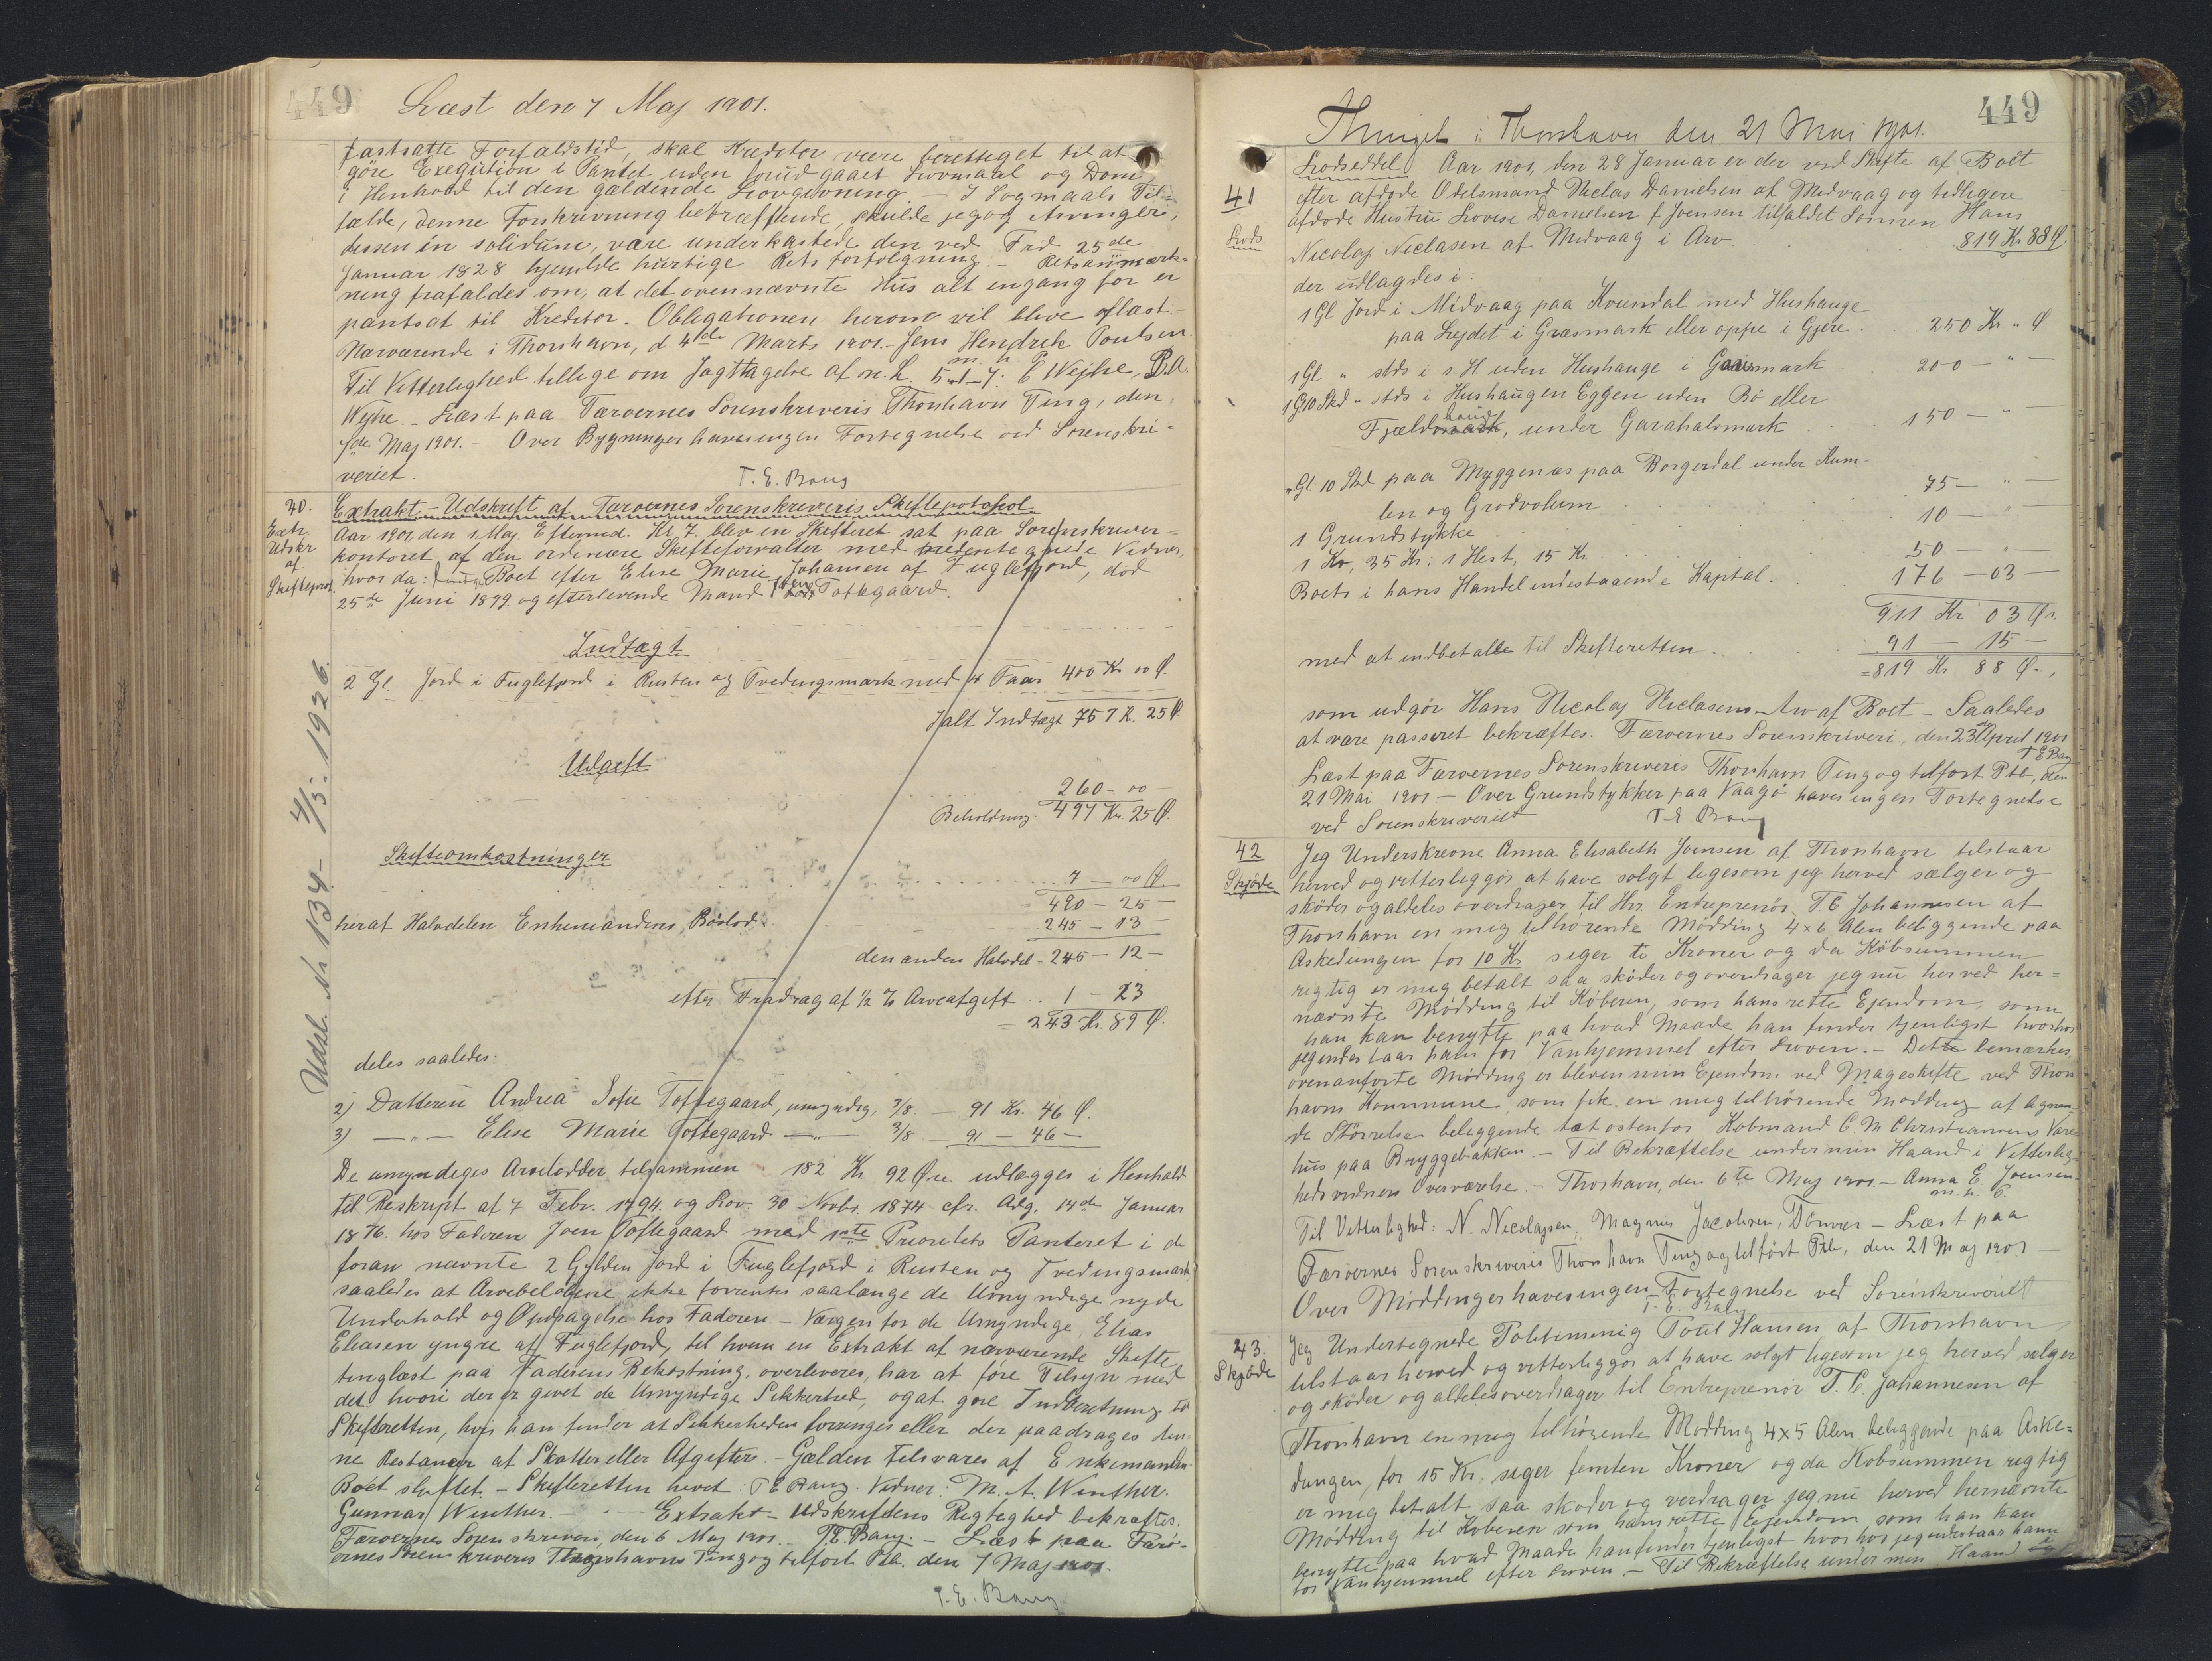 449 Læst den 7 Maj 1901.
fastsatte Forfaldstid, skal Kreditor være berettiget til at
göre Exegution i Pantet uden forudgaaet Lovmaal og Dom
i Henhold til den gældende Lovgivning. - I Sogmaals Til-
fælde, denne Forskrivning betræffende, skulde jeg og Arvinger,
dessen in solidum, være underkastede den ved Frd. 25de
Januar 1828 hjemlede hurtige Retsforfölgning. - Retsanmærk-
ning frafaldes om, at det ovennævnte Hus alt engang for er
pantsat til Kreditor. Obligationen herom vil blive aflæst. -
Nærværende i Thorshavn, d. 4de Marts 1901. - Jens Hendrik Poulsen
m. u. P.
Til Vitterlighed tillige om Jagttagelse af n. L. 5-1-7: E Wejhe, P.A.
Wejhe. - Læst paa Færøernes Sorenskriveris Thorshavn Ting, den
7de Maj 1901. - Over Bygninger haves ingen Fortegnelse ved Sorenskri-
veriet.
T. E. Bang
40.
Extr.
Udskr
af
Skifteprot.
Extrakt-Udskrift af Færøernes Sorenskriveris Skifteprotokol
Aar 1901, den 1 Maj. Eftermd. Kl 7, blev en Skifteret sat paa Sorenskriver-
kontoret af den ordinære Skifteforvalter med Vidner,
hvor da: Boet efter Elise Marie Johansen af Fuglefjord, död
25de Juni 1899 og efterlevende Mand Joen Toftegaard.
Indtægt
2 Gl. Jord i Fuglefjord i Rusten og Tvedingsmark med Faar 400 Kr 00 Ø.
Jalt Indtægt 757 K. 25 Ø.
Udgift
260 - 00 -
Beholdning 497 Kr. 25 Ø.
Skifteomkostninger
7 - 00 Ø.
490 - 25 -
heraf Halvdelen Enkemandens Böslod 245 - 13 -
den anden Halvdel = 245 - 12 -
efter Fradrag af ½ % Arveafgift .. 1 - 23
= 243 Kr. 89 Ø.
deles saaledes:
2) Datteren Andrea Sofie Toftegaard, umyndig, 3/8 - 91 Kr. 46 Ø.
3) - " - Elise Marie Toftegaard - " - 3/8 - 91 - 46 -
De umyndiges Arvelodder tilsammen 182 Kr 92 Øre udlægges i Henhold
til Reskript af 7 Febr. 1794 og Lov 30 Novbr. 1874 cfr. Adg. 14de Januar
1876. hos Faderen Joen Toftegaard med 1ste Prioritets Panteret i de
foran nævnte 2 Gylden Jord i Fuglefjord i Rusten og Tvedingsmark
saaledes at Arvebelöbene ikke forrentes saalænge de Umyndige nyde
Underhold og Opdragelse hos Faderen - Værgen for de Umyndige, Elias
Eliasen yngre af Fuglefjord, til hvem en Extrakt af nærværende Skifte
tinglæst paa Faderens Bekostning, overleveres, har at före Tilsyn med
det hvori der er givet de Umyndige Sikkerhed, og at göre Indberetning til
Skifteretten, hvis han finder at Sikkerheden forringes eller der paadrages den-
ne Restancer af Skatter eller Afgifter. - Gælden tilsvares af Enkemanden
Boet sluttet. - Skifteretten hævet. T E Bang. Vidner: M. A. Winther.
Gunnar Winther. - Extrakt-Udskriftens Rigtighed bekræftes.
Færøernes Sorenskriveri, den 6 Maj 1901. T.E. Bang. - Læst paa Færö-
ernes Sorenskriveris Thorshavns Ting og tilfört Ptb. den 7 Maj 1901.
T. E. Bang
Udsl. Nr 134 - 4/5. 1926.
Thinget i Thorshavn den 21 Mai 1901. 449
41
Lods.
Lodseddel Aar 1901, den 28 Januar er der ved Skifte af Boet
efter afdøde Odelsmand Niclas Danielsen af Midvaag og tidligere
afdøde Hustru Lovise Danielsen f Joensen tilfaldet Sønnen Hans
Nicolaj Niclasen af Midvaag i Arv. 819 Kr 88 Ø
der udlagdes i:
1 Gl Jord i Midvaag paa Kvendal med Hushauge
paa Lejdet i Græsmark eller oppe i Gjere. 250 Kr " Ø
1 Gl " stds i s. H. uden Hushauge i Græsmark 200 - " -
1 Gl 10 Skd " stds i Hushaugen Eggen uden Bö eller
Fjeldmark, under Garahalsmark 150 - " -
" Gl 10 Skd paa Myggenæs paa Borgerdal under Kum-
len og Grodvolum 75 - " -
1 Grundstykke 10 - " -
1 Ko, 35 Kr; 1 Hest, 15 Kr. 50 - " -
Boets i hans Handel indestaaende Kapital. 176 - 03 -
911 Kr 03 Ør.
med at indbetale til Skifteretten. 91 - 15 -
= 819 Kr 88 Ø.,
som udgör Hans Nicolaj Niclasens Arv af Boet - Saaledes
at være passeret bekræftes. Færøernes Sorenskriveri, den 23de April 1901
T E Bang
Læst paa Færøernes Sorenskriveris Thorshavn Ting og tilført Ptb., den
21 Mai 1901 - Over Grundstykker paa Vaagö haves ingen Fortegnelse
ved Sorenskriveriet
T. E Bang
42
Skjøde
Jeg Underskrevne Anna Elisabeth Joensen af Thorshavn tilstaar
herved og vitterliggør at have solgt ligesom jeg herved sælger og
skøder og aldeles overdrager til Hr. Entreprenör T. C Johannesen af
Thorshavn en mig tilhørende Mödding 4×6 Alen beliggende paa
Askedungen for 10 Kr siger ti Kroner og da Köbsummen
rigtig er mig betalt saa skøder og overdrager jeg nu herved her-
nævnte Mödding til Köberen, som hans rette Ejendom, som
han kan benytte paa hvad Maade han finder tjenligst hvorhos
jeg indestaar ham for Vanhjemmel efter Loven. - Dette bemærkes
ovenanførte Mödding er bleven min Ejendom ved Mageskifte ved Thors
havns Kommune, som fik en mig tilhørende Mödding af lignen-
de Störrelse beliggende tæt østenfor Købmand C M Christiansens Vare
hus paa Bryggebakken. - Til Bekræftelse under min Haand i Vitterlig-
heds vidners Overværelse. - Thorshavn, den 6te Maj 1901. - Anna E. Joensen
m. u. P
Til Vitterlighed: N. Nicolajsen, Magnus Jacobsen, - Læst paa
Færøernes Sorenskriveris Thorshavn Ting og tilfört Ptb, den 21 Maj 1901 -
Over Möddinger haves ingen Fortegnelse ved Sorenskriveriet
T. E. Bang
43.
Skjøde
Jeg Undertegnede Poul Hansen af Thorshavn
tilstaar herved og vitterliggör at have solgt ligesom jeg herved sælger
og skøder og aldeles overdrager til Entreprenør T. C. Johannesen af
Thorshavn en mig tilhørende Mödding 4×5 Alen beliggende paa Aske-
dungen, for 15 Kr. siger femten Kroner og da Købsummen rigtig
er mig betalt saa skøder og overdrager jeg nu herved hernævnte
Mødding til Køberen som hans rette Ejendom som han kan
benytte paa hvad Maade han finder tjenligst hvorhos jeg indestaar ham
for Vanhjemmel efter Loven. - Til Bekræftelse under min Haand